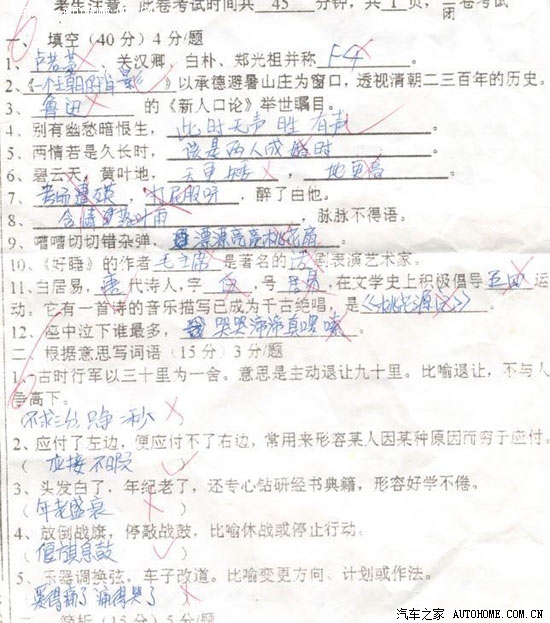 考生注意:此卷考试时间共 45 分钟,共 1 页,闭卷考试
一、填空(40分)4分/题
1、卢若莘、关汉卿、白朴、郑光祖并称 F4
2、《一个王朝的背影》以承德避暑山庄为窗口,透视清朝二三百年的历史。
3、鲁迅 的《新人口论》举世瞩目。
4、别有幽愁暗恨生, 此时无声胜有声 。
5、两情若是久长时, 该是两人成婚时
6、碧云天,黄叶地, 天更矮 , 地更高 。
7、 , ,醉了由他。
8、 ,脉脉不得语。
9、嘈嘈切切错杂弹, 漂漂亮亮桃花扇 。
10、《好睡》的作者 毛主席 是著名的 话 剧表演艺术家。
11、白居易, 唐 代诗人,字 白 ,号 居易 ,在文学史上积极倡导 运
动。它有一首诗的音乐描写已成为千古绝唱,是 《桃花源记》 。
12、座中泣下谁最多, 哭哭啼啼真 。
二、根据意思写词语(15分)3分/题
1、古时行军以三十里为一舍。意思是主动退让九十里。比喻退让,不与人
争高下。
(不求三分,只争二秒 )
2、应付了左边,便应付不了右边,常用来形容某人因某种原因而穷于应付。
( 应接不暇 )
3、头发白了,年纪老了,还专心钻研经书典籍,形容好学不倦。
( 年老盛衰 )
4、放倒战旗,停敲战鼓,比喻休战或停止行动。
( 偃旗息鼓 )
5、乐器调换弦,车子改道。比喻变更方向、计划或作法。
爱得痛了 痛得哭了 )
三、简析(15分)5分/题
汽车之家 AUTOHOME.COM.CN